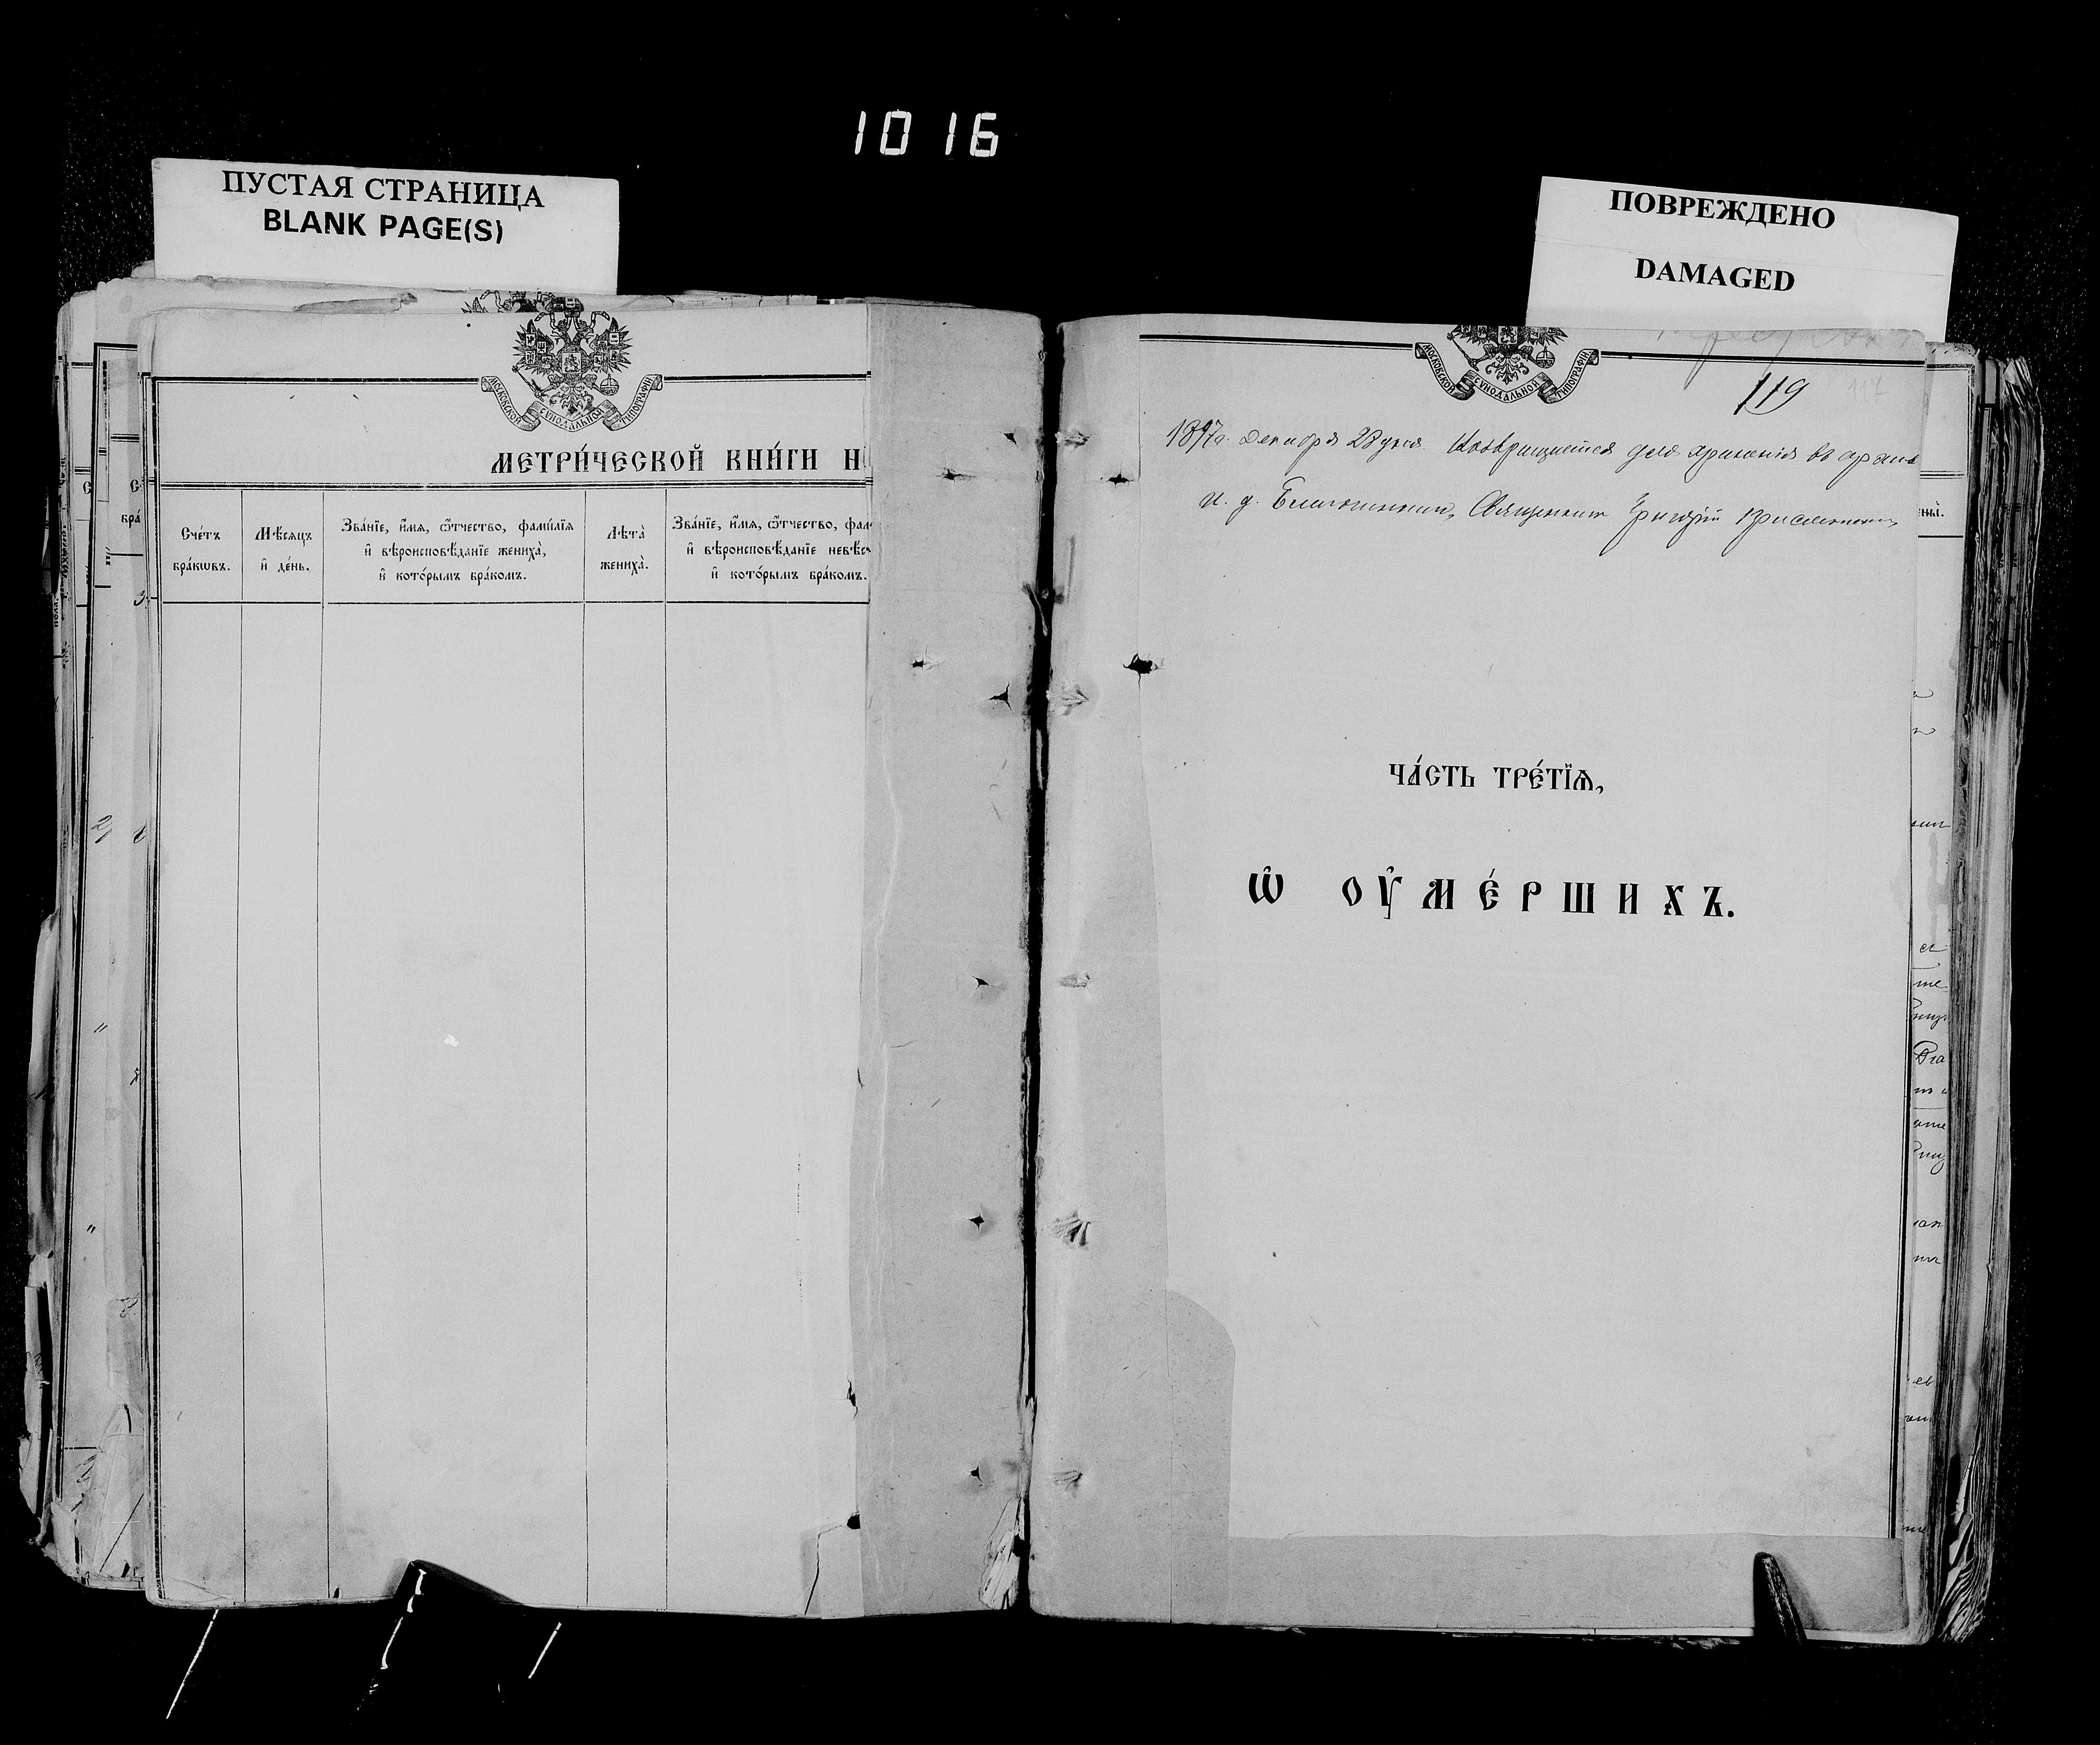 1016
ПУСТАЯ СТРАНИЦА
BLANK PAGE(S)
ПОВРЕЖДЕНО
DAMAGED
МОСКОВСКОЙ СѴНОДАЛЬНОЙ ТИПОГРАФІИ
МЕТРИ́ЧЕСКОЙ КНИ́ГИ Н
Сче́тъ бра́кѡвъ.
Мѣ́сяцъ и҆ де́нь.
Зва́нїе, и҆́мѧ, ѻ҆́тчество, фами́лїѧ
и҆ вѣроисповѣ́данїе жениха̀,
и҆ кото́рымъ бра́комъ.
Лѣта̀ жениха̀.
Зва́нїе, и҆́мѧ, ѻ҆́тчество, фам
и҆ вѣроисповѣ́данїе невѣс
и҆ кото́рымъ бра́комъ.
МОСКОВСКОЙ СѴНОДАЛЬНОЙ ТИПОГРАФІИ
119
117
1897 г. Декабря 23 дня Возвращается для храненія въ архив
И. д. Благочиннаго, Священникъ Григорій
ЧА́СТЬ ТРЕ́ТЇѦ,
Ѡ҆ ОУ҆МЕ́РШИХЪ.